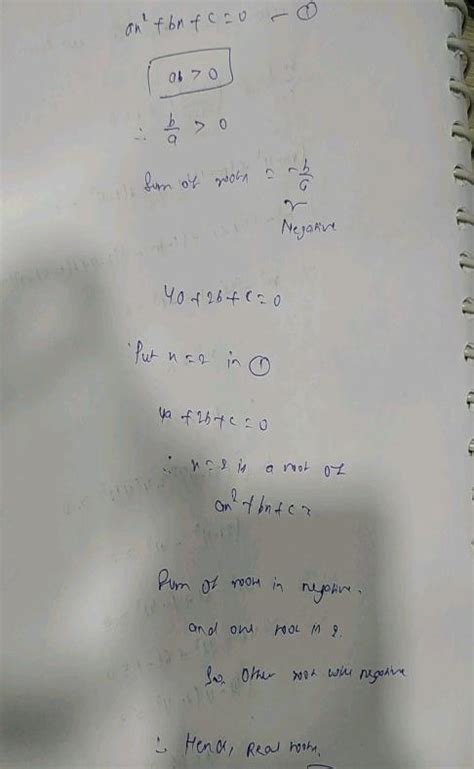 ax² + bx + c = 0 - ①
ab > 0
∴ b/a > 0
Sum of roots = -b/a
Negative
4a + 2b + c = 0
Put x = 2 in ①
4a + 2b + c = 0
∴ x = 2 is a root of
ax² + bx + c =
Sum of roots is negative.
and one root is 2.
So, other root will negative
∴ Hence, Real roots.